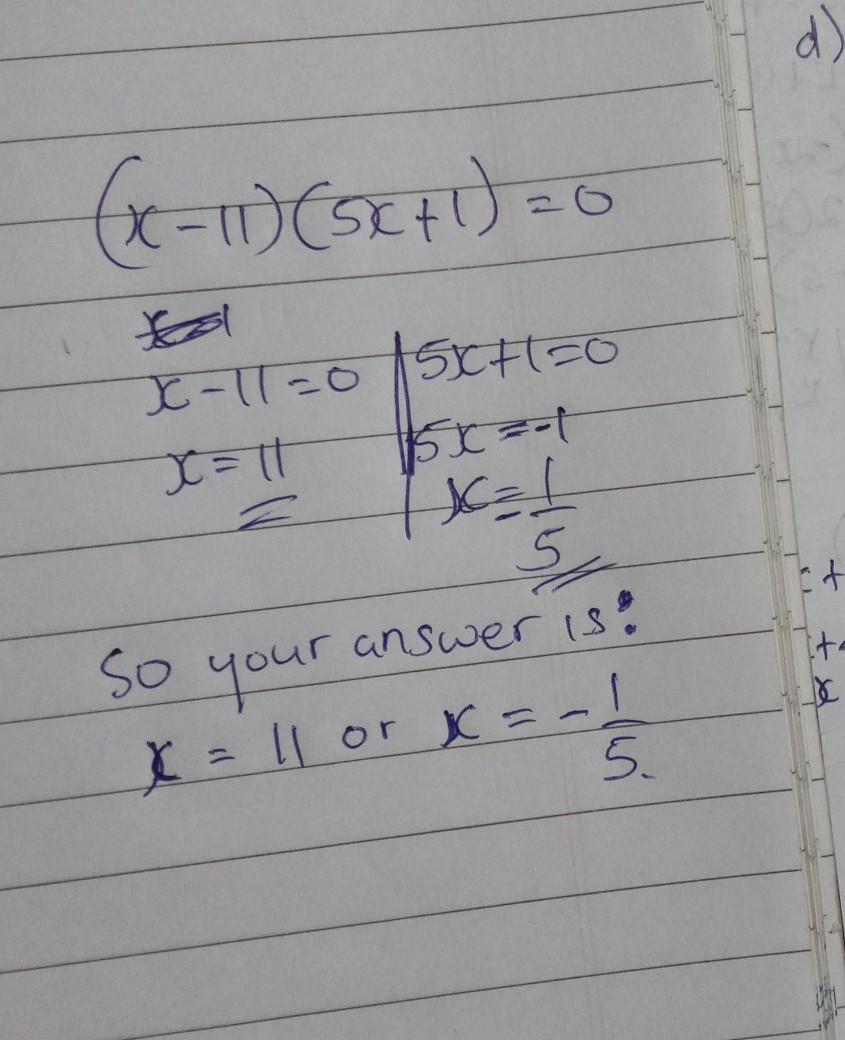 d)
(x-11)(5x+1) = 0
x-11=0 | 5x+1=0
x=11 | 5x=-1
x=-1/5
So your answer is:
x = 11 or x = -1/5.